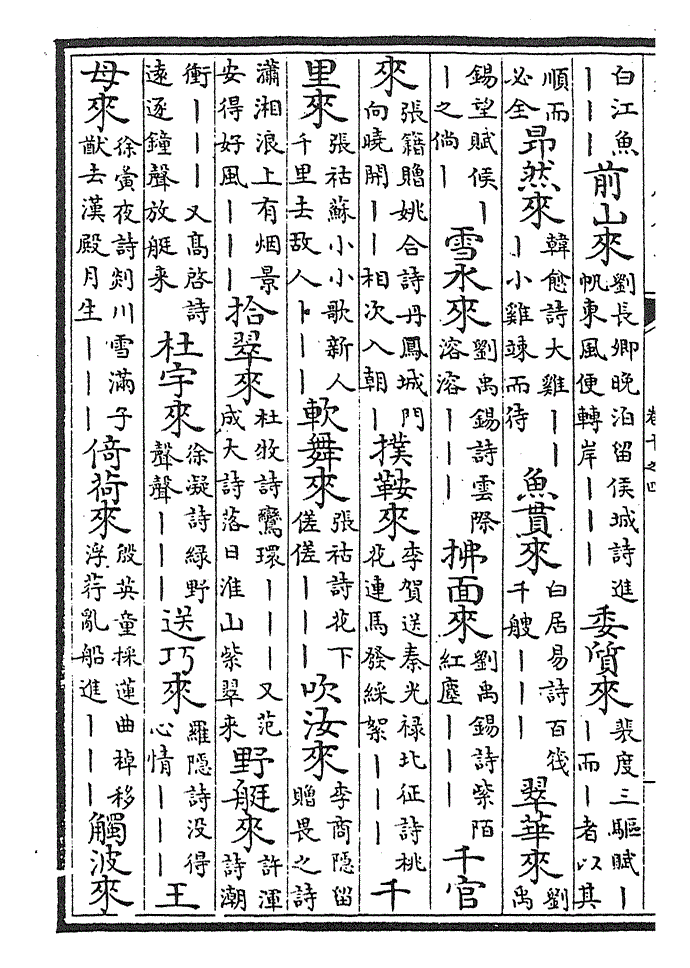 白江魚｜｜｜前山來劉長卿晚泊留侯城詩進帆東風便轉岸｜｜｜委質來裴度三驅賦｜｜而｜者以其
順而必全昂然來韓愈詩大雞｜｜｜小雞竦而待魚貫來白居易詩百筏千艘｜｜｜翠華來劉禹
錫望賦侯｜｜之倘｜雪永來劉禹錫詩雲際溶溶｜｜｜拂面來劉禹錫詩紫陌紅塵｜｜｜千官
來張籍贈姚合詩丹鳳城門向曉開｜｜相次入朝｜撲鞍來李賀送秦光禄北征詩桃花連馬發綵絮｜｜｜千
里來張祜蘇小小歌新人千里去敌人｜｜｜軟舞來張祜詩花下傞傞｜｜｜吹汝來李商隱留贈畏之詩
瀟湘浪上有烟景安得好風｜｜｜拾翠來杜牧詩鸞環｜｜｜又范成大詩落日淮山紫翠来野艇來許渾詩潮
衝｜｜｜又髙啓詩逺逐鐘聲放艇来杜宇來徐凝詩緑野聲聲｜｜｜送巧來羅隱詩没得心情｜｜｜王
母來徐黌夜詩剡川雪滿子猷去漢殿月生｜｜｜倚荷來殷英童採蓮曲棹移浮荇亂船進｜｜｜觸波來
卷十之四